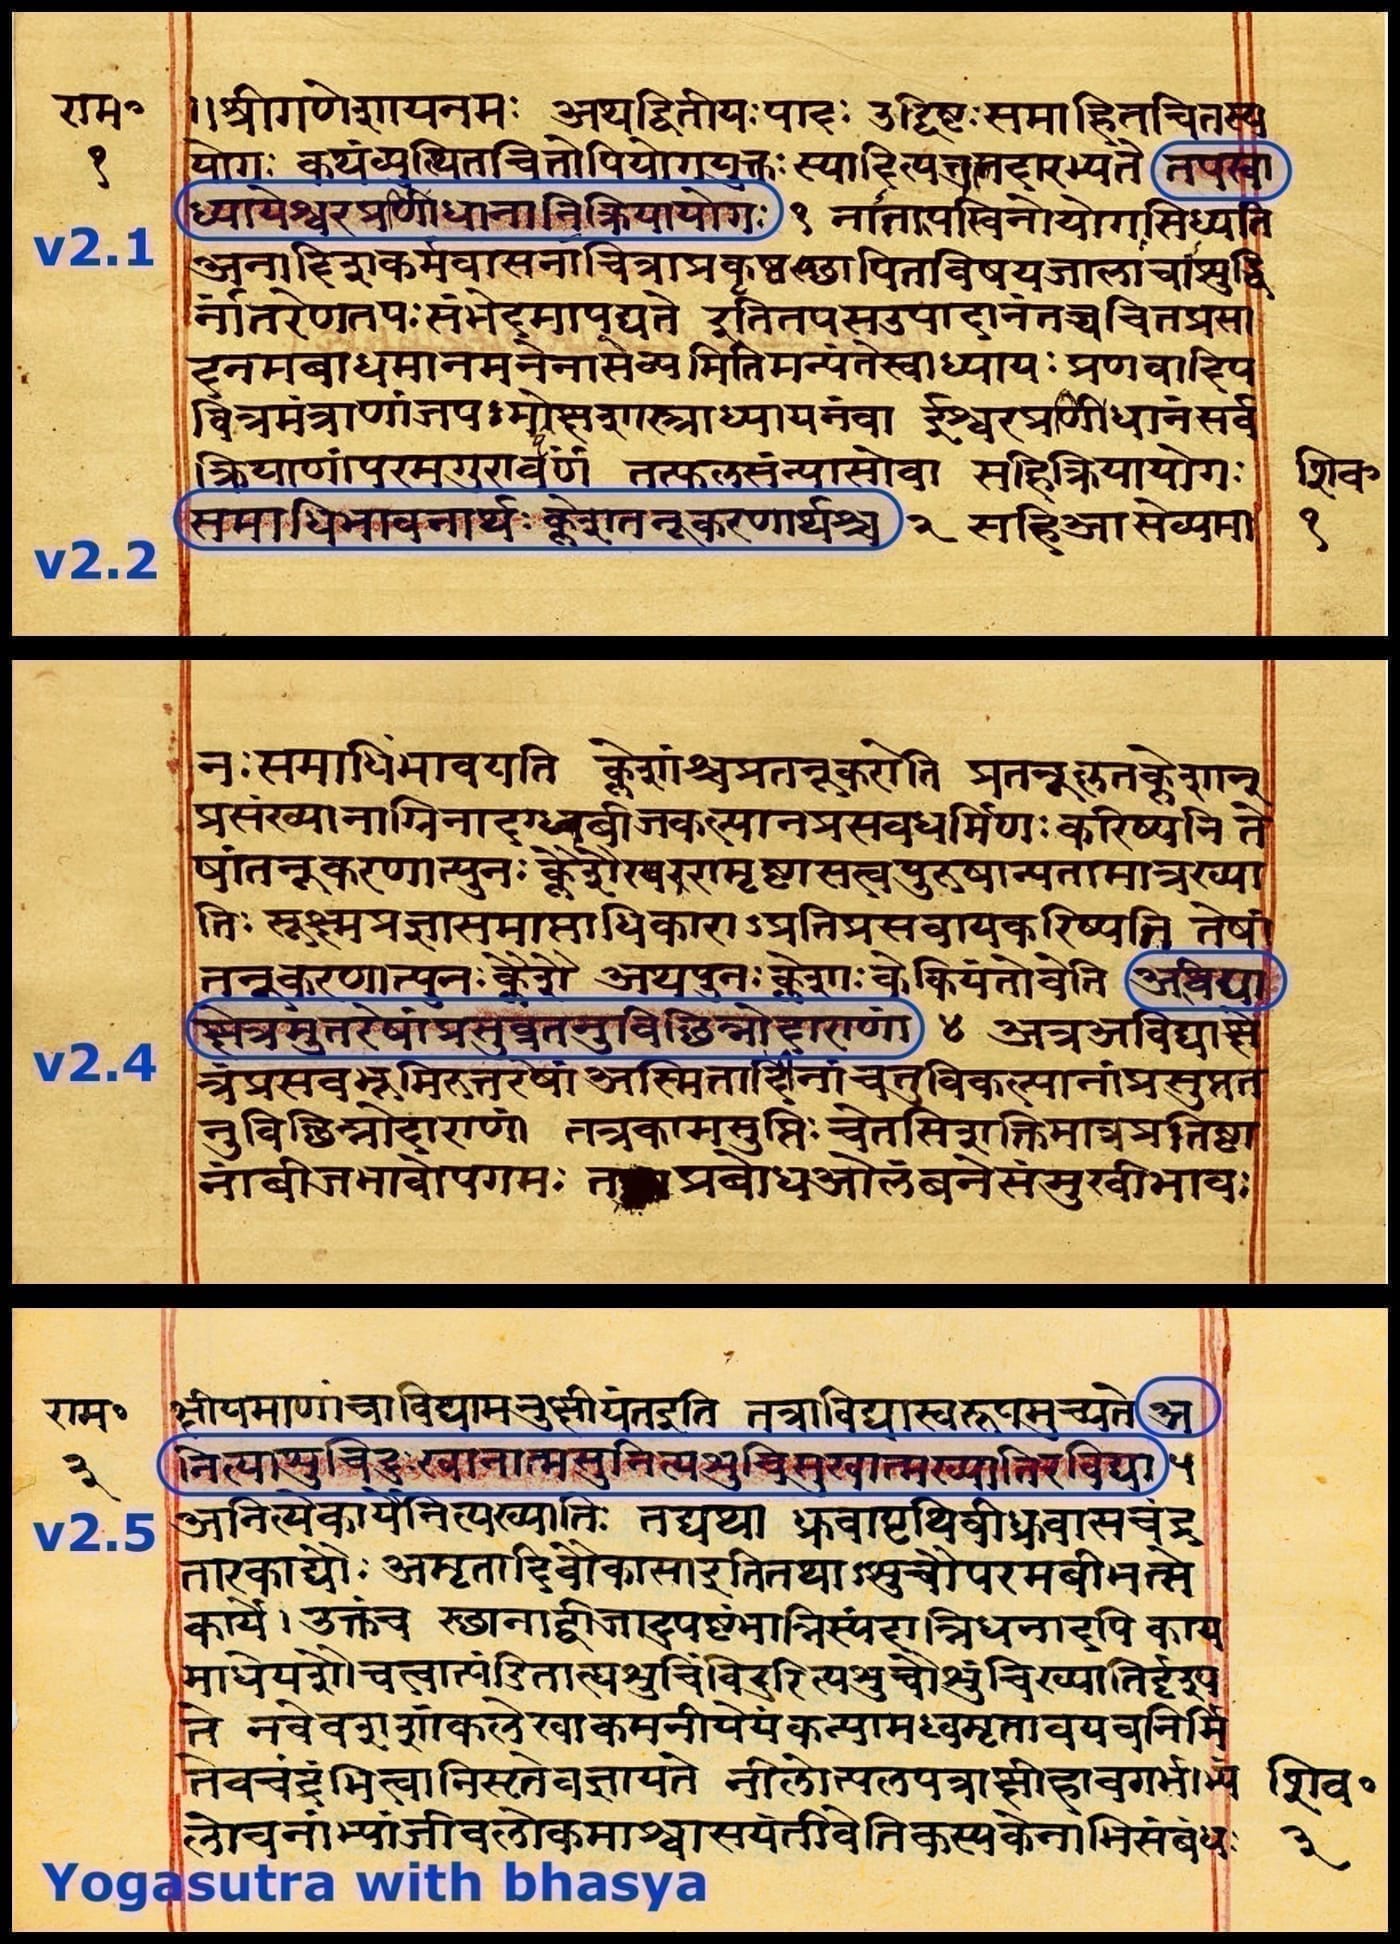 राम॰ ॥श्रीगणेशायनमः अथद्वितीयःपादः उद्दिष्टःसमाहितचितस्य
१ योगः कथंव्युत्थितचित्तोपियोगयुक्तःस्यादित्यत्रतदारभ्यते तपस्वा
ध्यायेश्वरप्रणीधानानिक्रियायोगः १ नातापस्विनोयोगसिध्यति
v2.1
अनादिशकर्मवासनाचित्राप्रकृ पितविषयजालाचाशुद्धि
र्नातरेणतपःसंभेदमापद्यते इतितपसउपादानंतच्चचितप्रसा
दनमबाधमानमनेनासेव्यमितिमन्यंतेस्वाध्यायः प्रणवादिप
वित्रमंत्राणांजप ध्यायनंवा ईश्वरप्रणीधानंसर्व
क्रियाणांपरमगुरावर्पणं तत्फलसंन्यासोवा सहिक्रियायोगः शिव॰
समाधिभावनार्थः क्लेशतनूकरणार्थश्च २ सहिआसेव्यमा १
v2.2
नःसमाधिंभावयति क्लेशांश्चप्रतनूकरोति प्रतनूकृतक्लेशान्
प्रसंख्यानाग्निनादग्धबीजकल्पानप्रसवधर्मिणःकरिष्यनि ते
षांतनूकरणात्पुनः क्लेशैरपरामृष्टासत्वपुरुषान्यतामात्रख्या
तिः सूक्ष्मप्रज्ञासमाप्ताधिकाराऽप्रतिप्रसवायकरिष्यति तेषां
तनूकरणात्पुनःक्लेशै अथपुनःक्लेशाः केकियंतोवेति अविद्या
क्षेत्रमुतरेषांप्रसुव्रतनुविछिन्नोदाराणां ४ अत्रअविद्याक्षे
v2.4
त्रंप्रसवभूमिरुत्तरेषांअस्मितादीनांचतुविकल्पानांप्रसुप्तत
नुविछिन्नोदाराणां तत्रकाप्रसुप्तिः चेतसिशक्तिमात्रप्रतिष्टा
नांबीजभावोपगमः प्रबोधओलंबनेसंमुखीभावः
राम॰ क्षीयमाणांचाविद्यामनुक्षीयंतइति तत्राविद्यास्वरूपमुच्यते अ
३ नित्याशुचिदुःखानात्मसुनित्यशुचिसुखात्मख्यातिरविद्या ५
v2.5
अनित्येकार्येनित्यख्यातिः तद्यथा ध्रुवापृथिवीध्रुवासचंद्र
तारकाद्यौः अमृतादिवौकासाइतितथाऽशुचौपरमबीभत्से
कार्ये। उक्तंच स्छानाद्बीजादुपष्टंभान्निस्पंदान्निधनादपि काय
माधेयशौचत्वात्पंडिताह्यशुचिंविदुरित्यशुचौशुचिख्यातिर्दृश्य
ते नवेवशशांकलेखाकमनीयेयंकन्यामध्वमृतावयवनिर्मि
तेवचंद्रंभित्वानिसृतेवज्ञायते नीलोत्पलपत्राक्षीहावगर्भाभ्यं शिव॰
लोचनांभ्यांजीवलोकमाश्वासयंतीवेतिकस्यकेनाभिसंबंधः ३
Yogasutra with bhasya